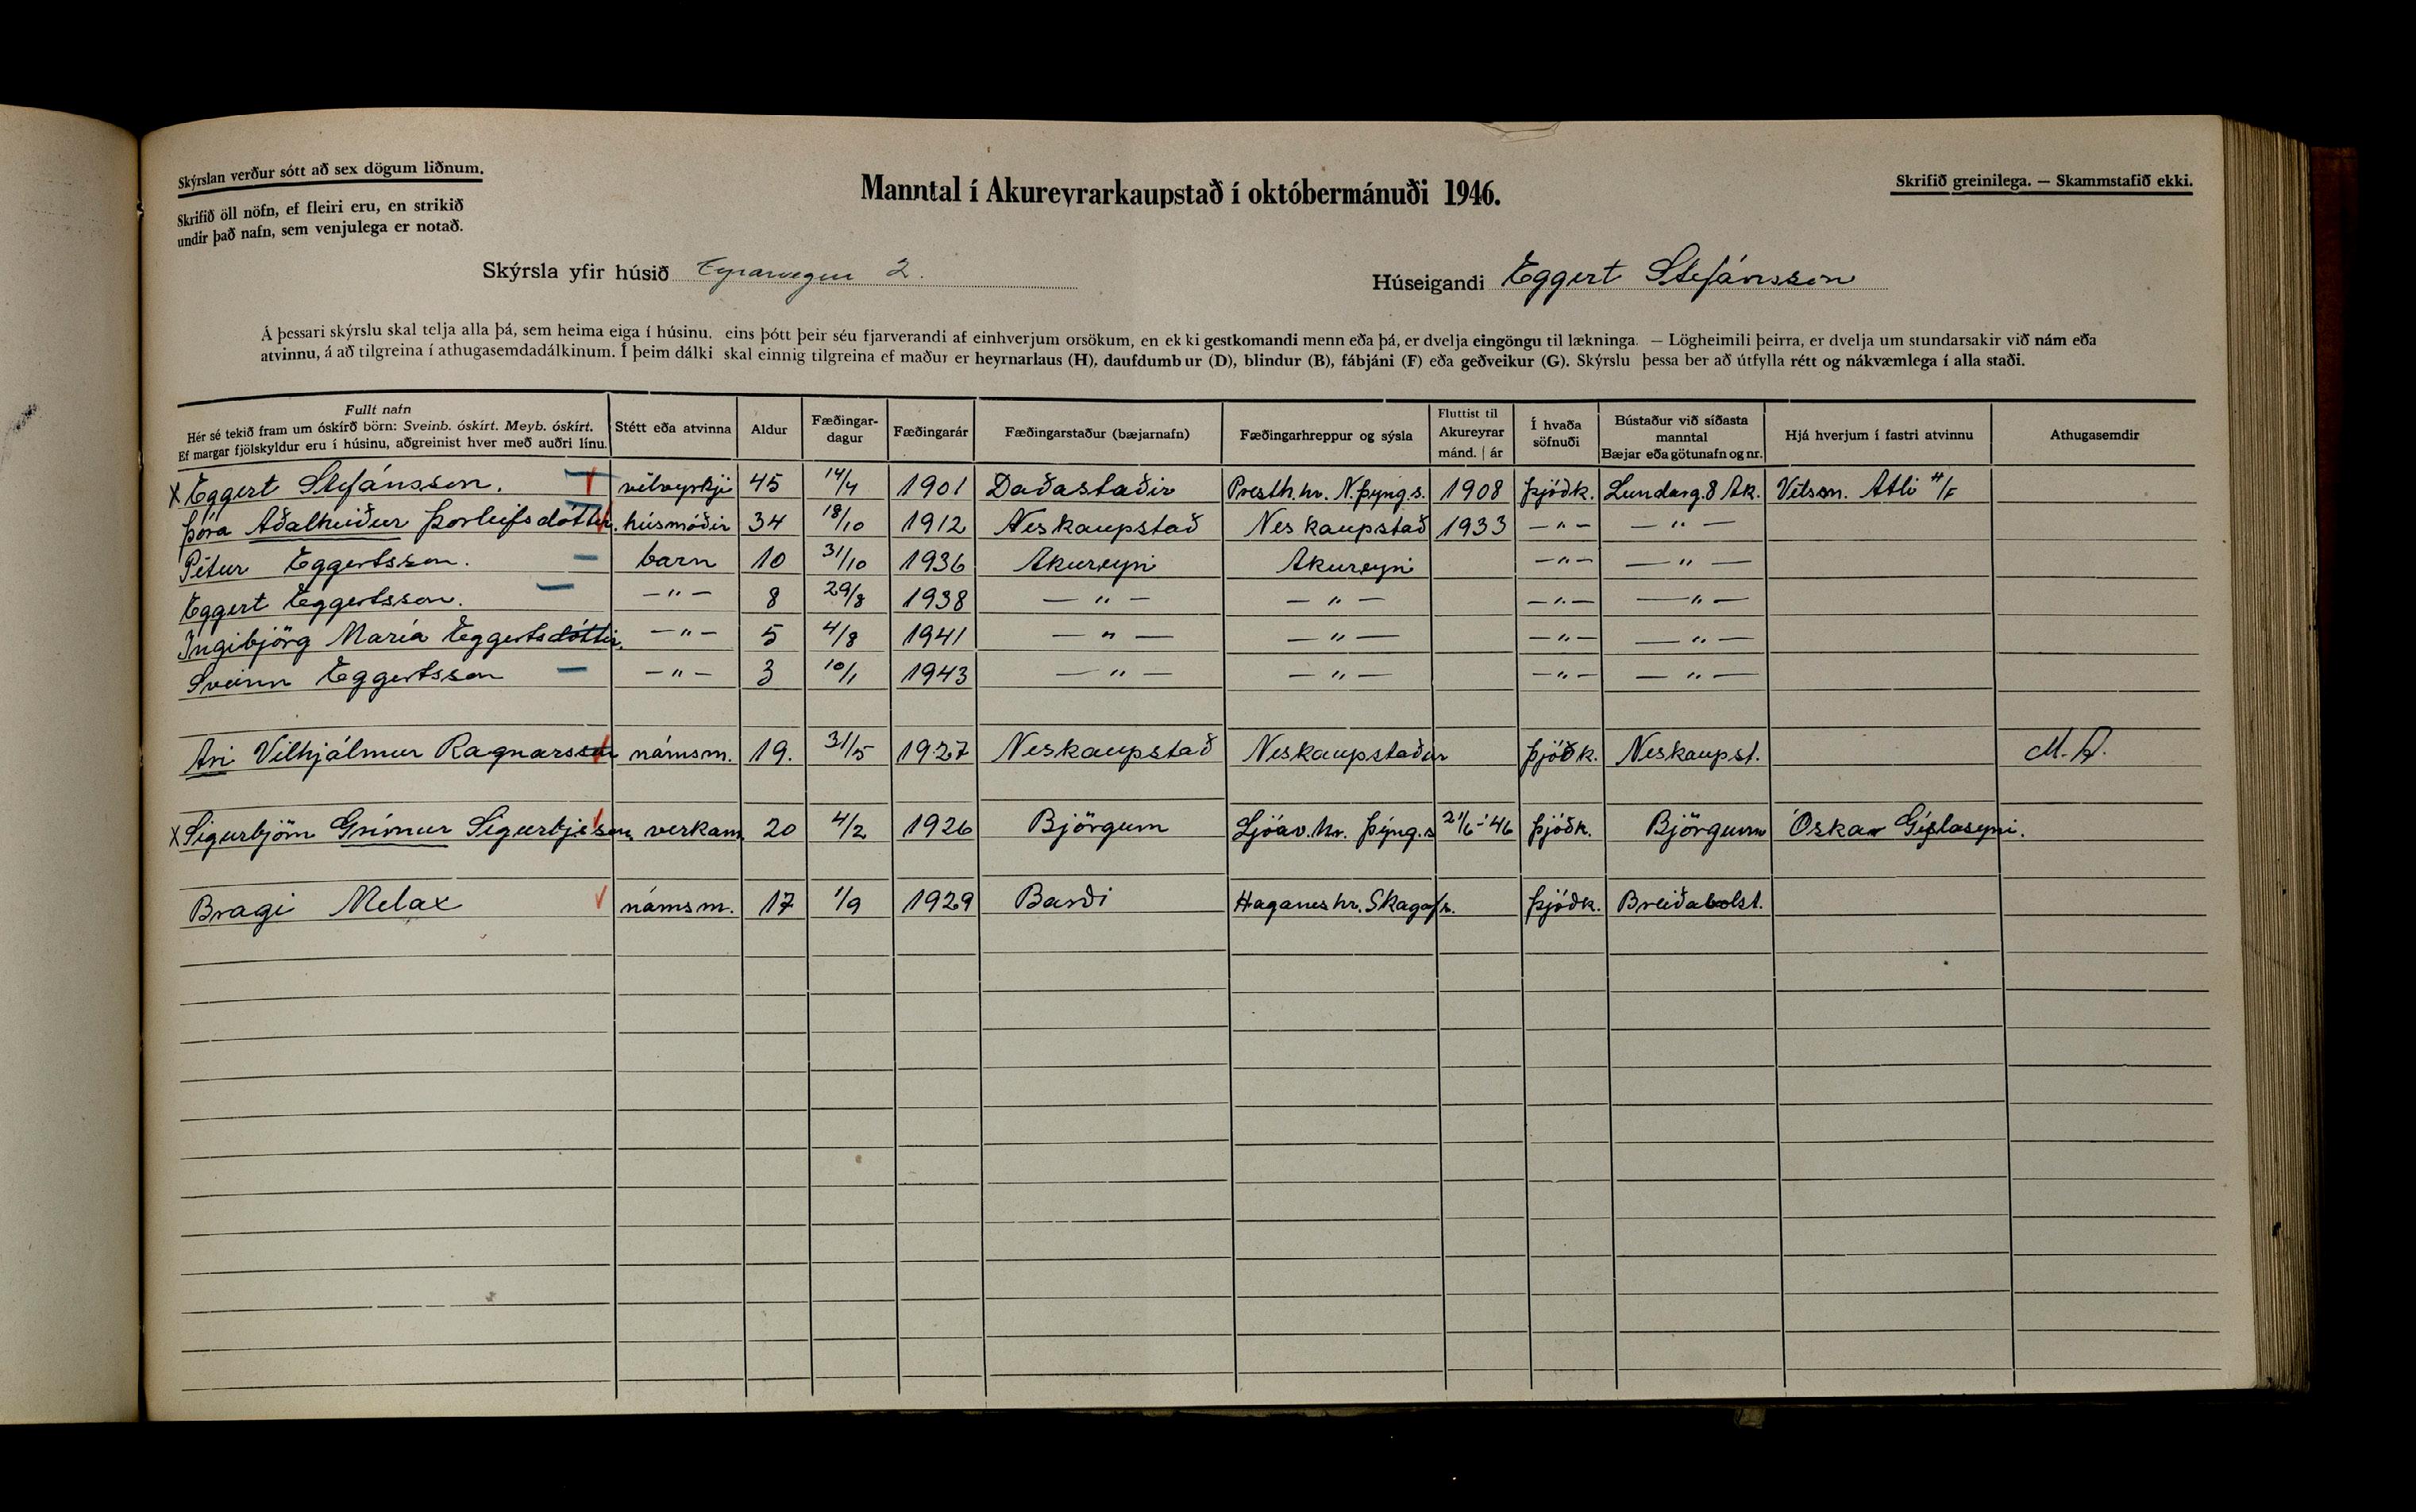 Skýrslan verður sótt að sex dögum liðnum.
Skrifið öll nöfn, ef fleiri eru, en strikið
undir það nafn, sem venjulega er notað.
Manntal í Akureyrarkaupstað í októbermánuði 1946.
Skrifið greinilega. — Skammstafið ekki.
Skýrsla yfir húsið Eyrarvegur 2.
Húseigandi Eggert Stefánsson
Á þessari skýrslu skal telja alla þá, sem heima eiga í húsinu, eins þótt þeir séu fjarverandi af einhverjum orsökum, en ekki gestkomandi menn eða þá, er dvelja eingöngu til lækninga. — Lögheimili þeirra, er dvelja um stundarsakir við nám eða
atvinnu, á að tilgreina í athugasemdadálkinum. Í þeim dálki skal einnig tilgreina ef maður er heyrnarlaus (H), daufdumbur (D), blindur (B), fábjáni (F) eða geðveikur (G). Skýrslu þessa ber að útfylla rétt og nákvæmlega í alla staði.
Fullt nafn Hér sé tekið fram um óskírð börn: Sveinb. óskírt. Meyb. óskírt. Ef margar fjölskyldur eru í húsinu, aðgreinist hver með auðri línu. Stétt eða atvinna Aldur Fæðingar-dagur Fæðingarár Fæðingarstaður (bæjarnafn) Fæðingarhreppur og sýsla Fluttist til Akureyrar mánd. | ár Í hvaða söfnuði Bústaður við síðasta manntal Bæjar eða götunafn og nr. Hjá hverjum í fastri atvinnu Athugasemdir
x Eggert Stefánsson. vélvyrkji 45 14/4 1901 Daðastaðir Presth.hr. N.þyng.s. 1908 þjóðk. Lundarg. 8 Ak. Vélsm. Atli H/F
Þóra Aðalheiður Þorleifsdóttir. húsmóðir 34 18/10 1912 Neskaupstað Neskaupstað 1933 —"— —"—
Pétur Eggertsson. barn 10 31/10 1936 Akureyri Akureyri —"— —"—
Eggert Eggertsson. —"— 8 29/8 1938 —"— —"— —"— —"—
Ingibjörg María Eggertsdóttir. —"— 5 4/8 1941 —"— —"— —"— —"—
Sveinn Eggertsson —"— 3 10/1 1943 —"— —"— —"— —"—
Ari Vilhjálmur Ragnarsson námsm. 19. 31/5 1927 Neskaupstað Neskaupstaður þjóðk. Neskaupst. M.A.
x Sigurbjörn Grímur Sigurbjsson verkam 20 4/2 1926 Björgum Ljósav.hr. Þing.s 21/6-'46 þjóðk. Björgum Óskar Gíslasyni.
Bragi Melax námsm. 17 1/9 1929 Barði Haganeshr. Skagafr. þjóðk. Breiðabolst.